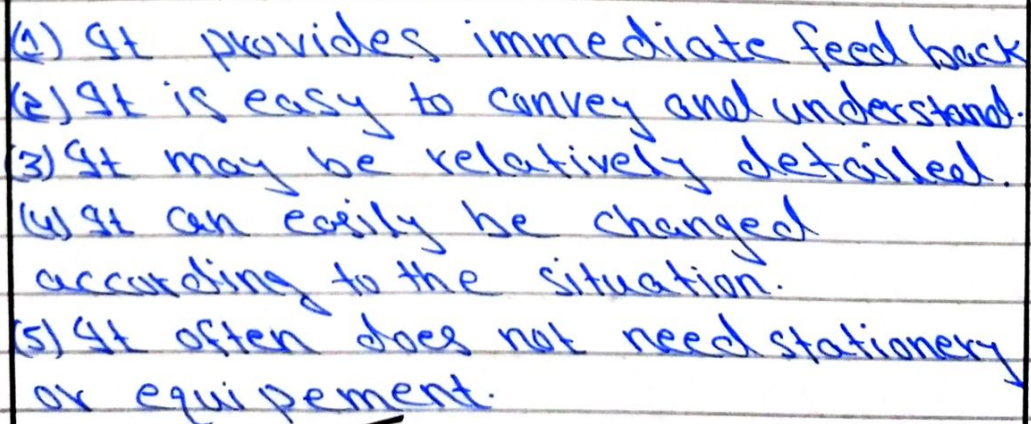 (1) It provides immediate feed back
(2) It is easy to convey and understand.
(3) It may be relatively detailed.
(4) It can easily be changed
according to the situation.
(5) It often does not need stationery
or equipement.